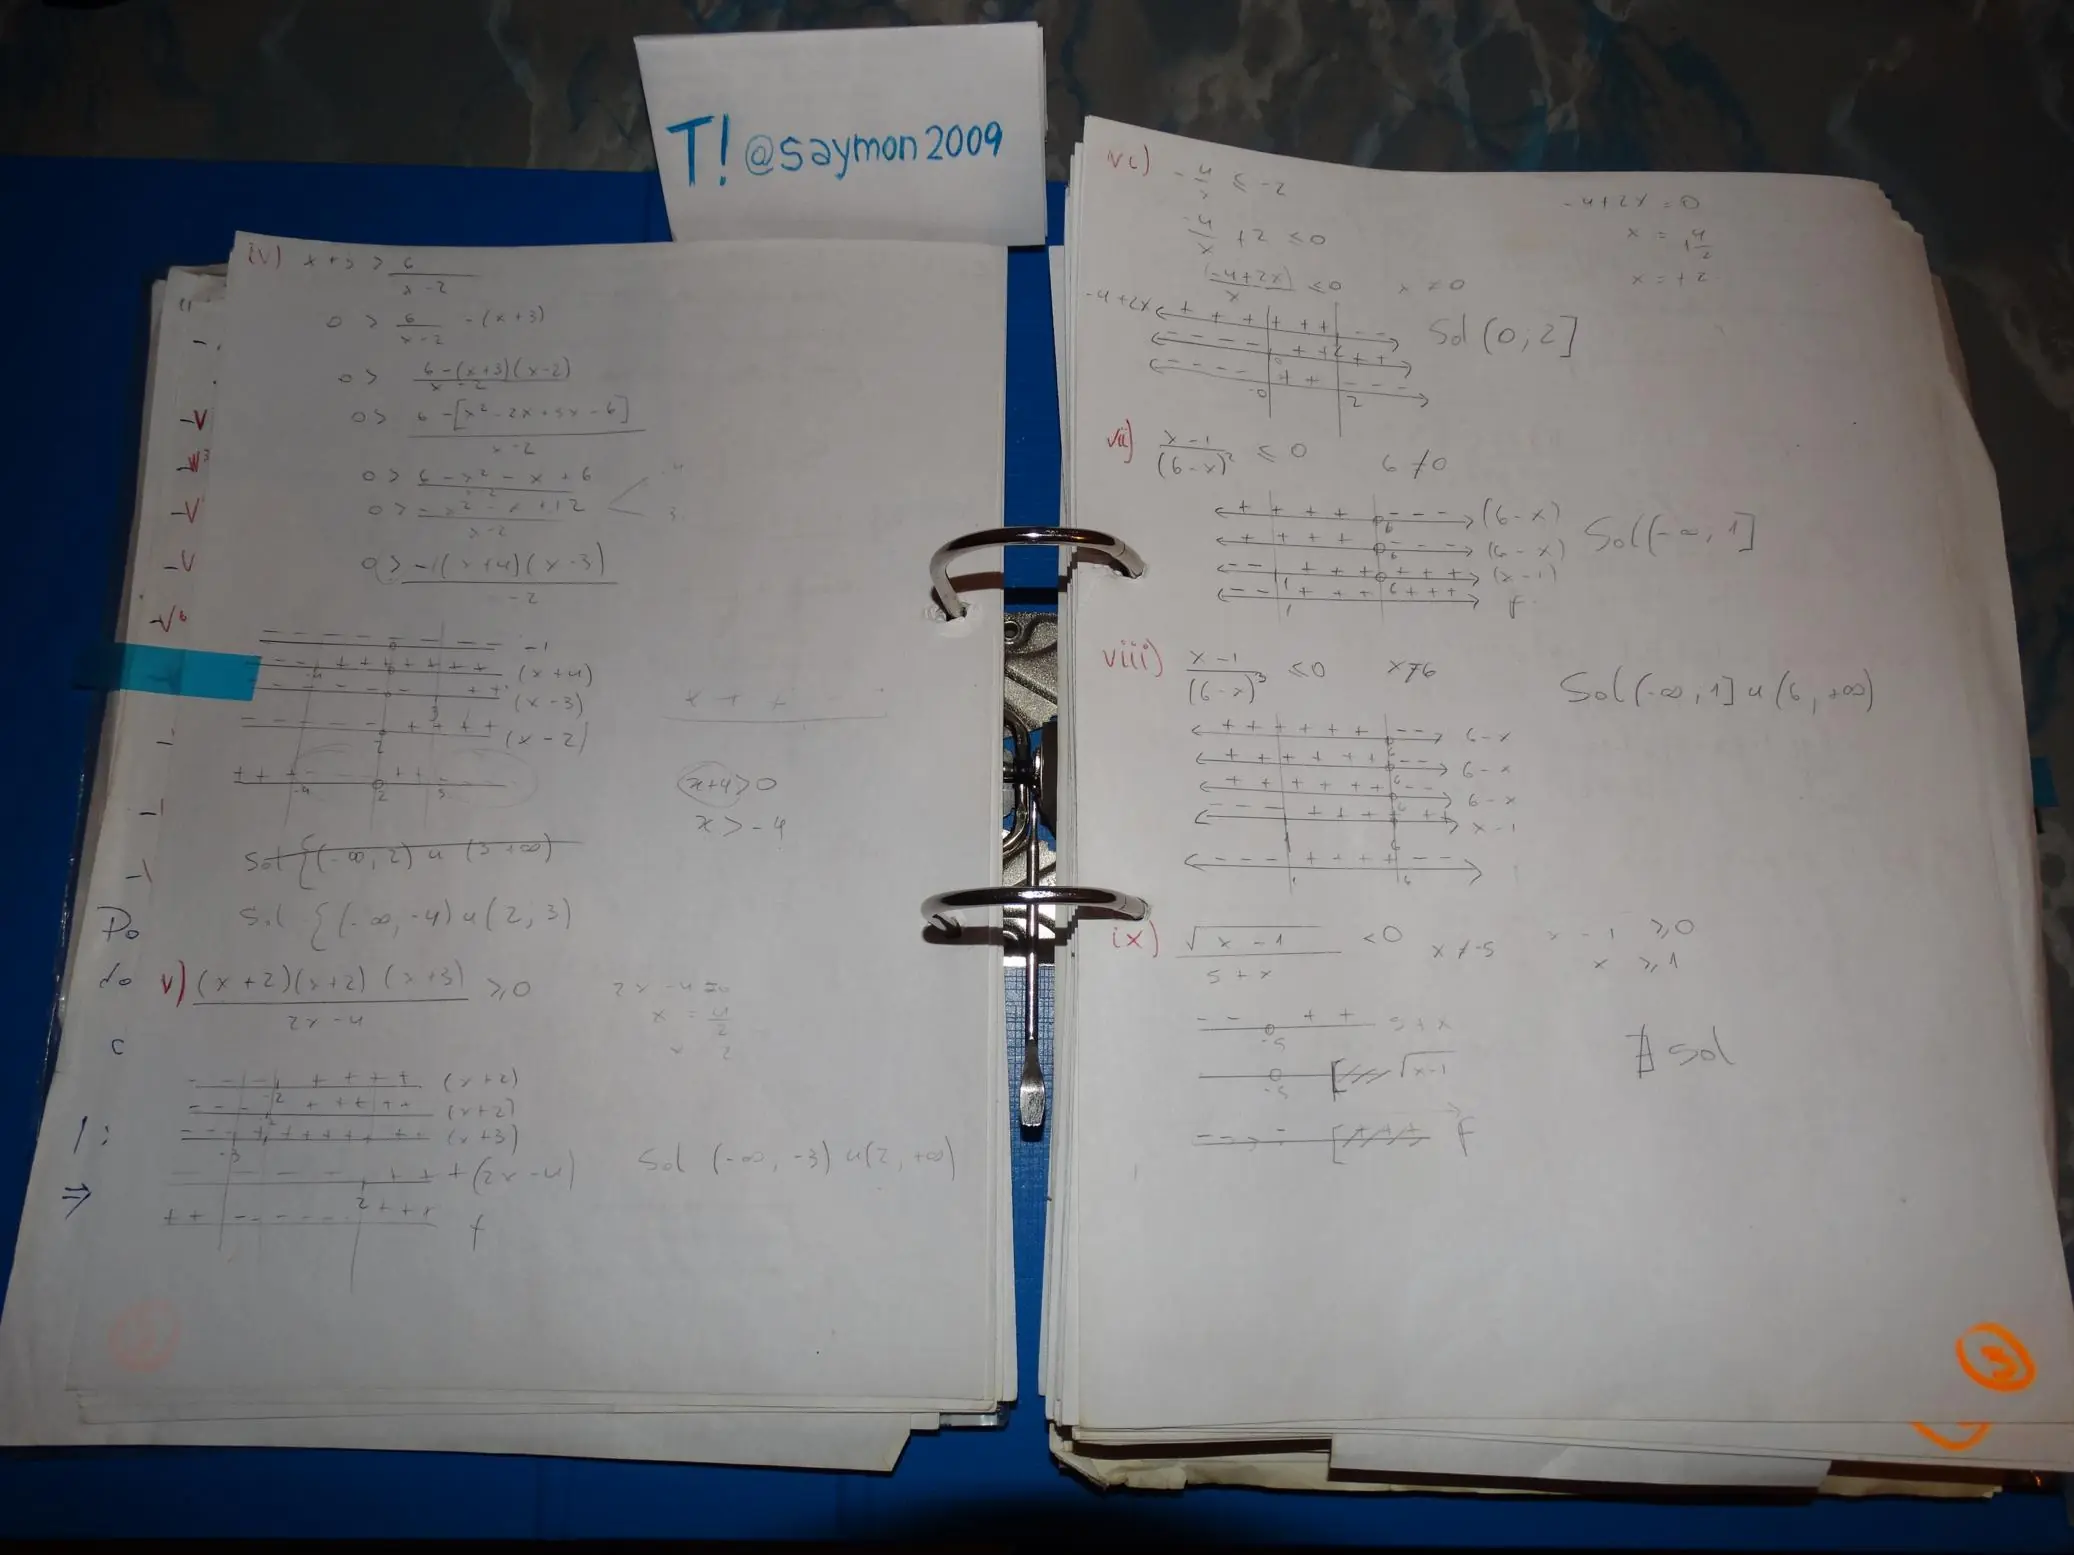 T! @saymon2009
iv) x+3 > 6/(x-2)
0 > 6/(x-2) -(x+3)
0 > (6-(x+3)(x-2))/(x-2)
0 > (6-[x²-2x+3x-6])/(x-2)
0 > 6-x²-x+6
0 > (-x²-x+12)/(x-2)
-4
3
0 > (-1(x+4)(x-3))/(-2)
- - - - - - - -1
(x+4)
-4
(x-3)
3
(x-2)
2
-4 2 3
x+4>0
x>-4
Sol {(-∞, 2) u (3 +∞)
Sol {(-∞, -4) u (2, 3)
Po
do
c
1:
⇒
v) ((x+2)(x+2)(x+3))/(2x-4) ≥0
2x-4=0
x = 4/2
x 2
(x+2)
-2
(x+2)
(x+3)
-3
(2x-4)
2
f
Sol (-∞, -3) u (2, +∞)
vi) -4/x ≤ -2
-4/x +2 ≤0
(-4+2x)/x ≤0 x≠0
-4+2x=0
x = 4/+2
x = +2
-4+2x
2
Sol (0; 2]
vii) (x-1)/(6-x)² ≤ 0 6≠0
(6-x)
6
(6-x)
6
(x-1)
1 6
f
1
Sol (-∞, 1]
viii) (x-1)/(6-x)³ ≤0 x≠6
Sol (-∞, 1] u (6, +∞)
6-x
6-x
6-x
x-1
1 6
ix) √(x-1)/(5+x) <0 x≠-5
x-1 ≥0
x ≥1
- - + + 5+x
-5
√x-1
-5
f
∄ sol
3